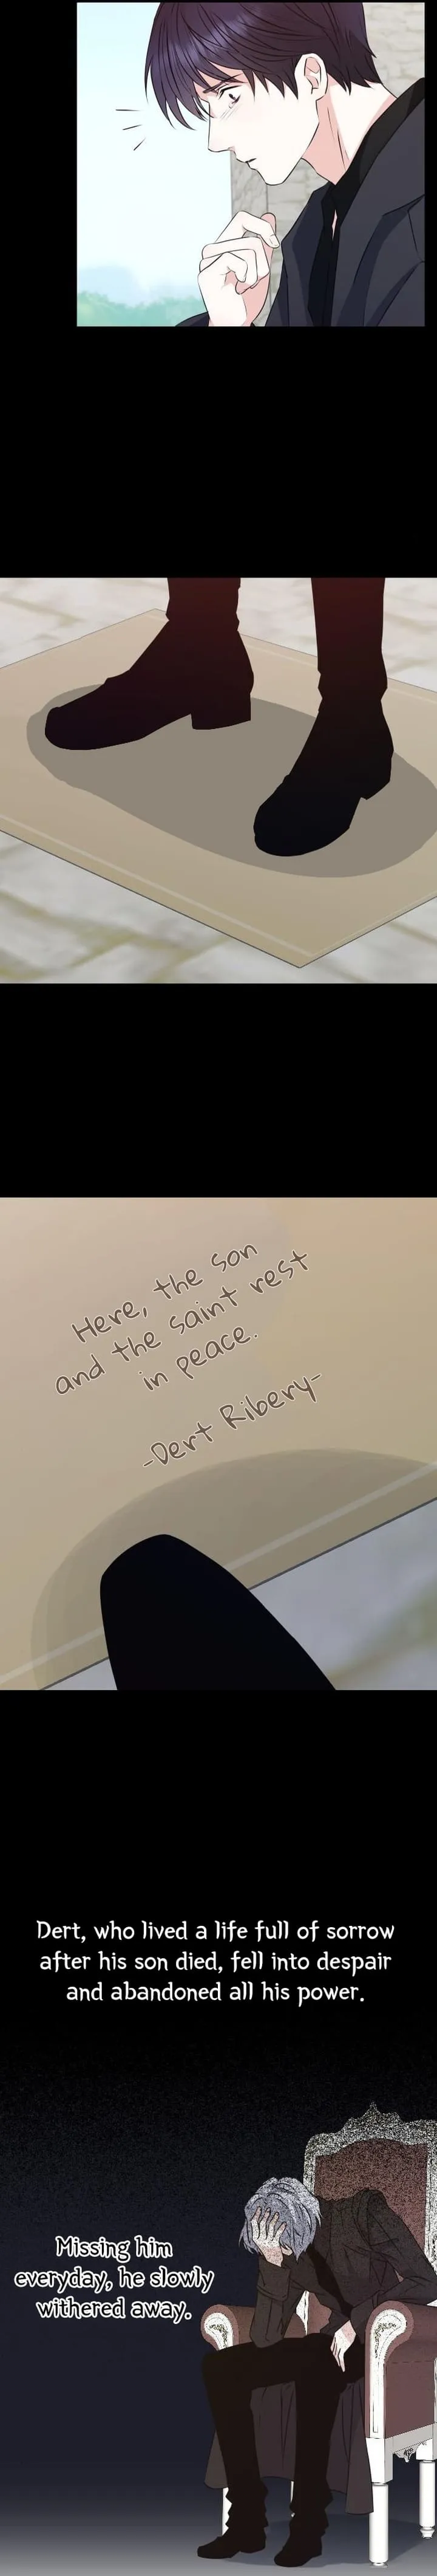 Here, the son
and the saint rest
in peace.
-Dert Ribery-
Dert, who lived a life full of sorrow
after his son died, fell into despair
and abandoned all his power.
Missing him
everyday, he slowly
withered away.